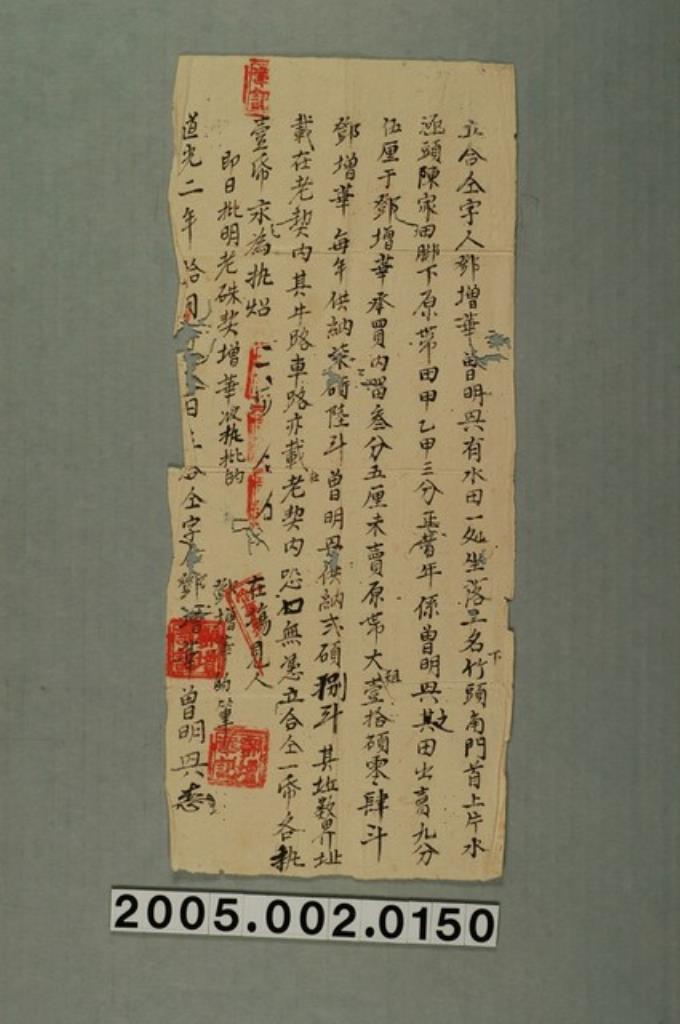 立合仝字人鄧增華曾明興有水田一処坐落土名竹頭角門首上片水
下
涵頭陳家田腳下原帶田甲乙甲三分正當年係曾明興其田出賣九分
之
伍厘于鄧增華承買內留叁分五厘未賣原帶大壹拾碩零肆斗
租
鄧增華每年供納柒碩陸斗曾明興供納弍碩捌斗其坵數界址
載在老契內其牛路車路亦載老契內恐口無憑立合仝一帋各執
壹帋永為執炤
在塲見人
即日批明老硃契增華收執批的
鄧增華的筆
道光二年拾月 日立合仝字人鄧增華曾明興
2005.002.0150